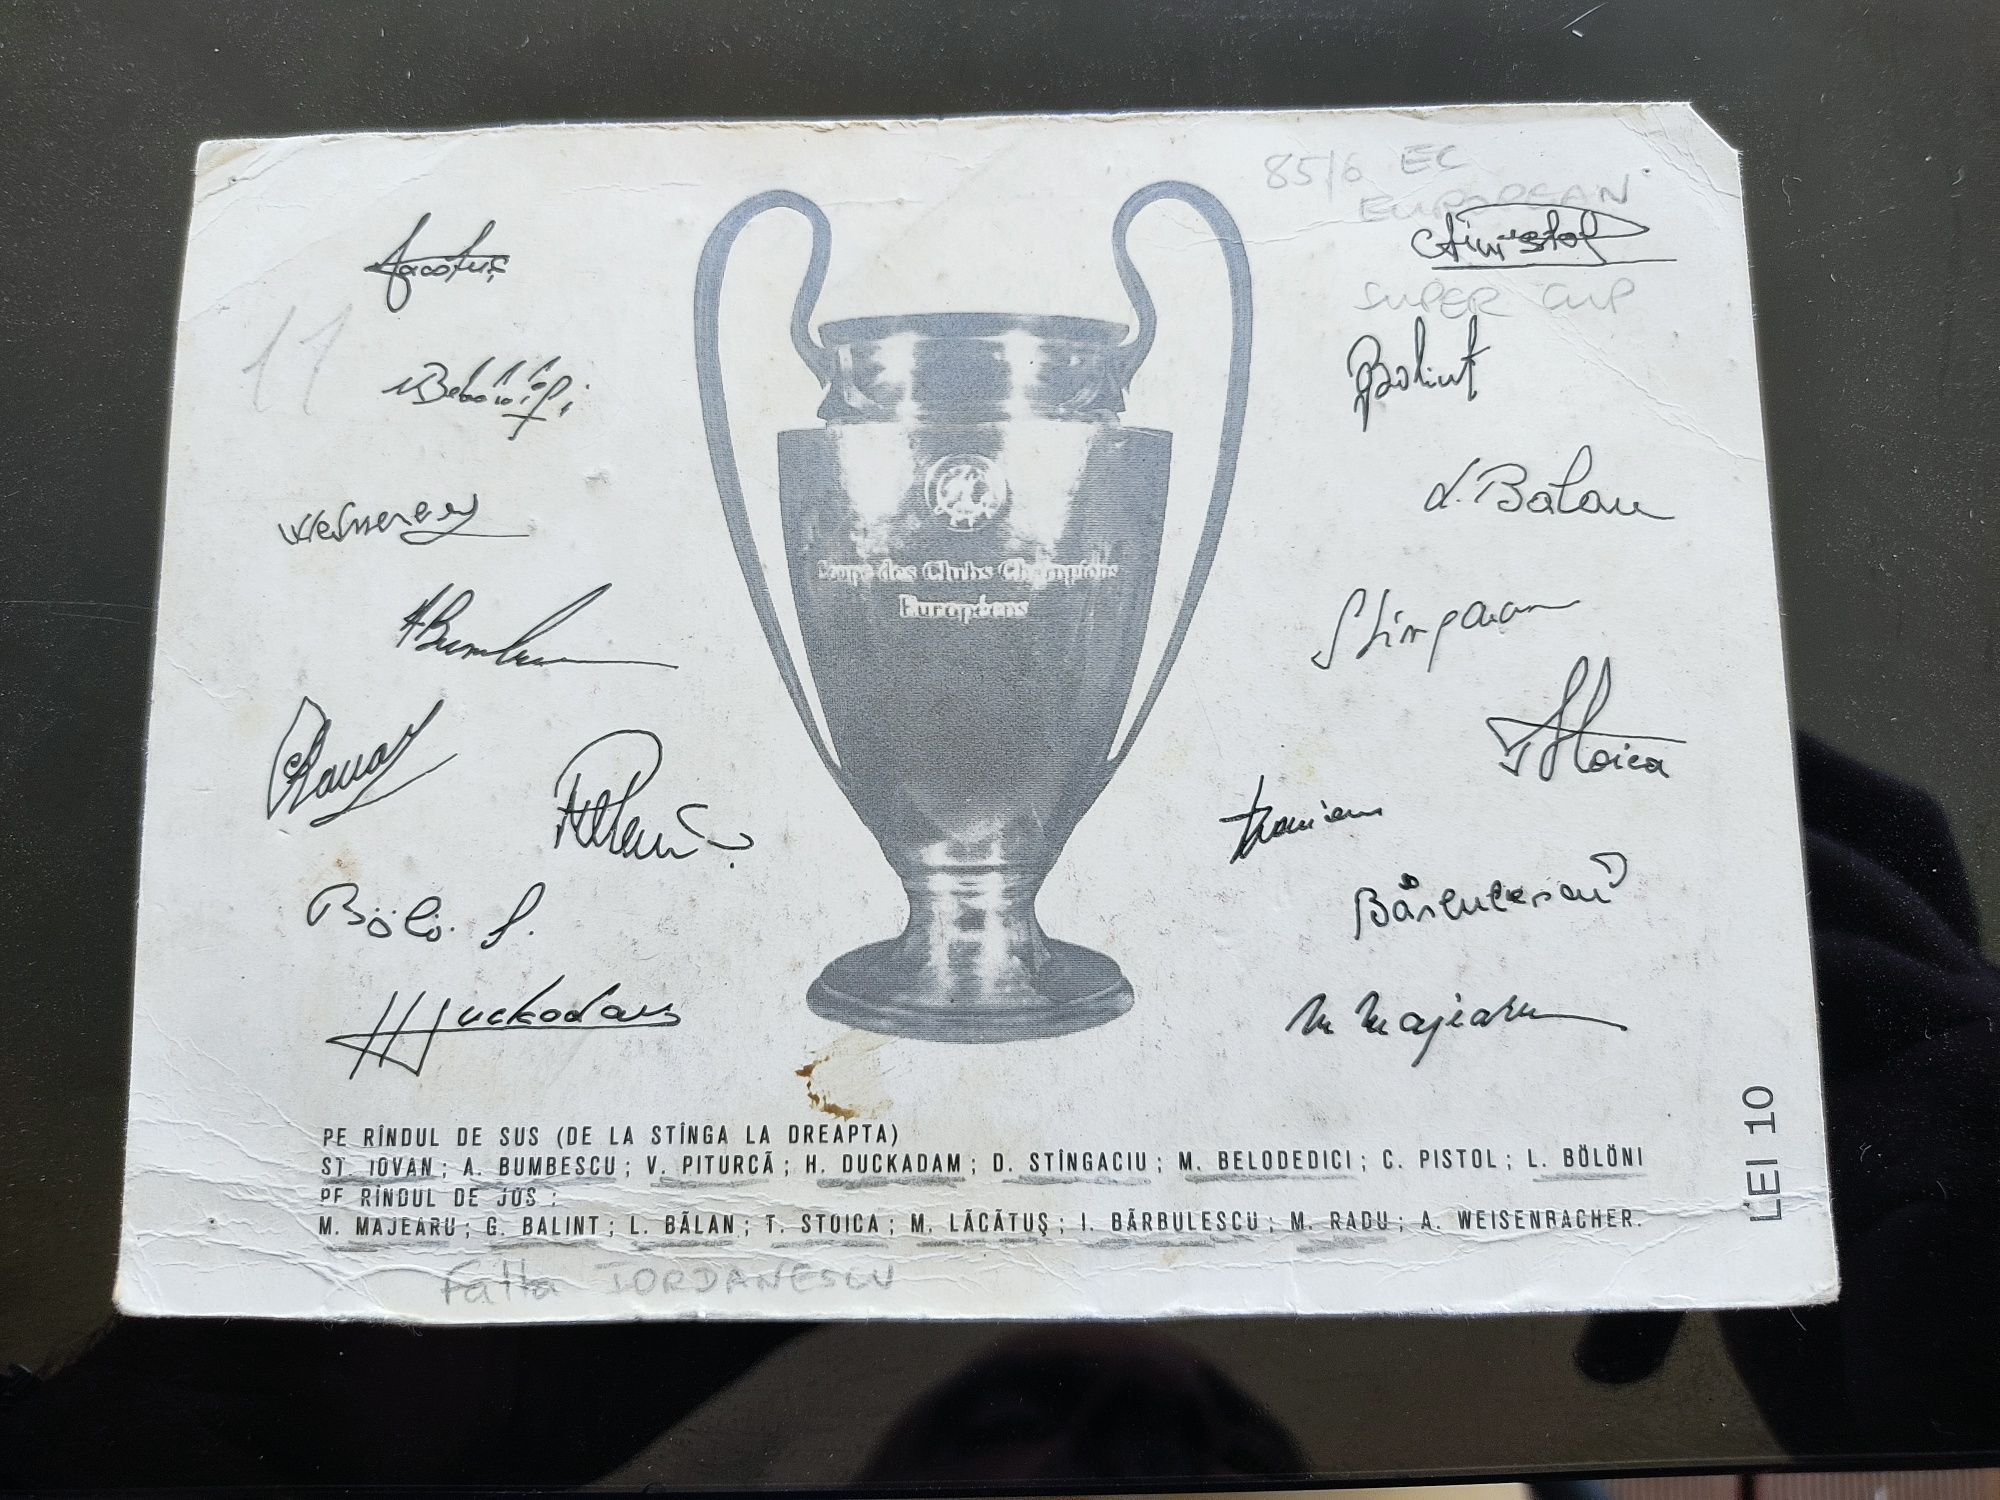 85/6 EC
EUROPEAN
SUPER CUP
11
Lăcătuș
Pistol
Balint
L. Bălan
A Bumbescu
Stîngaciu
T Stoica
Bölö. L.
Bărbulescu
H Duckadam
M Majearu
Coupe des Clubs Champions
Européens
PE RÎNDUL DE SUS (DE LA STÎNGA LA DREAPTA)
ST. IOVAN; A. BUMBESCU; V. PITURCĂ; H. DUCKADAM; D. STÎNGACIU; M. BELODEDICI; C. PISTOL; L. BÖLÖNI
PE RÎNDUL DE JOS:
M. MAJEARU; G. BALINT; L. BĂLAN; T. STOICA; M. LĂCĂTUŞ; I. BĂRBULESCU; M. RADU; A. WEISENBACHER.
LEI 10
IORDANESCU